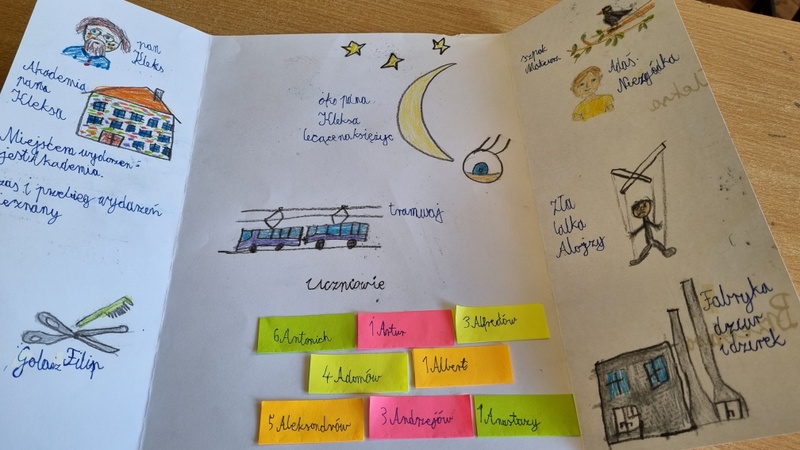 pan
Kleks
Akademia
pana
Kleksa
Miejscem wydarzeń
jest Akademia.
zas i przebieg wydarzeń
eznany
Golarz Filip
oko pana
Kleksa
lecące na księżyc
tramwaj
Uczniowie
6 Antonich
1 Artur
3 Alfredów
4 Adamów
1 Albert
5 Aleksandrów
3 Andrzejów
1 Anastazy
szpak
Mateusz
Adaś
Niezgódka
Zła
lalka
Alojzy
Fabryka
dziur
i dziurek